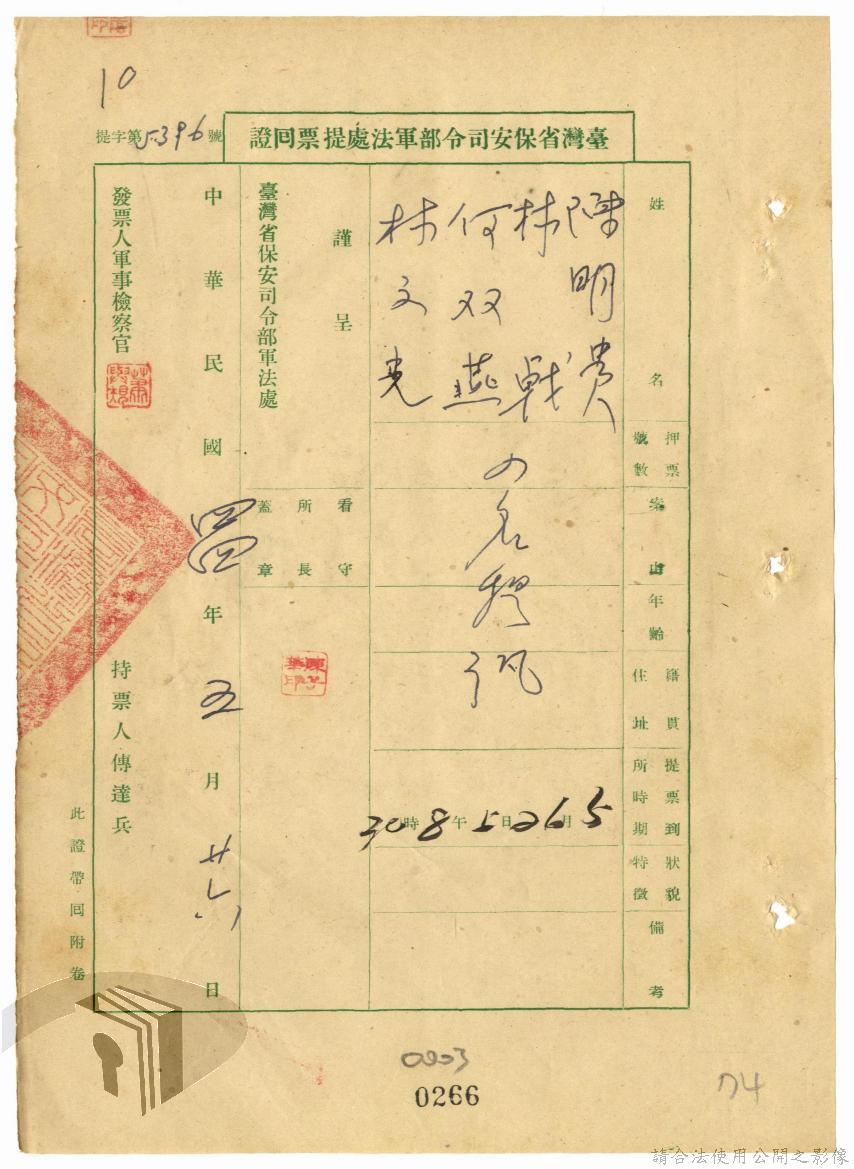 10
提字第5396號
臺灣省保安司令部軍法處提票回證
姓名
押票號數
案由
年齡
籍貫住址
提票到所時期
狀貌特徵
備考
陳明貴
林戟
何双燕
林文光
5月26日5午8時30
謹呈
臺灣省保安司令部軍法處
看守所長蓋章
中華民國四四年五月廿六日
發票人軍事檢察官
持票人傳達兵
此證帶回附卷
0203
0266
74
請合法使用公開之影像